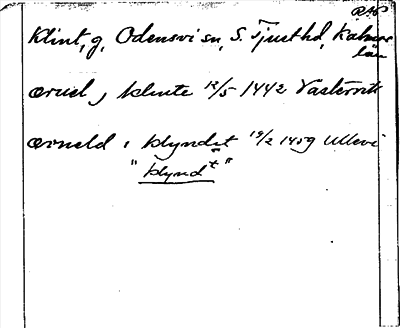 RAÖ
Klint, g, Odensvi sn, S. Tjusthd, Kalmar
län
Øruel, j klinte 12/5 1442 Västervik
Ørneld i klyndit 19/2 1459 Ullevi
"klyndt"